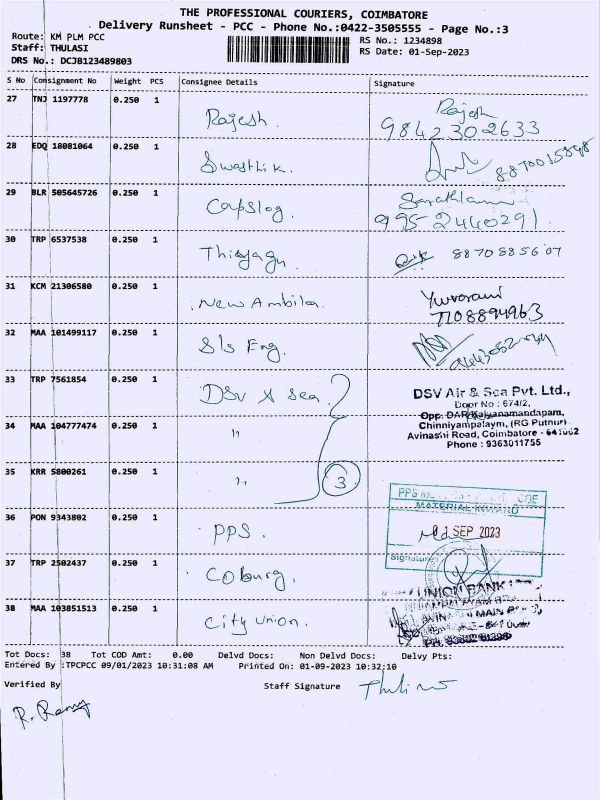 THE PROFESSIONAL COURIERS, COIMBATORE
Delivery Runsheet - PCC - Phone No.:0422-3505555 - Page No.:3
Route: KM PLM PCC
RS No.: 1234898
Staff: THULASI
RS Date: 01-Sep-2023
DRS No.: DCJB123489803
S No Consignment No Weight PCS Consignee Details Signature
27 TNJ 1197778 0.250 1 Rajesh. Rajesh
9842302633
28 EDQ 18081064 0.250 1 Swasthik.
29 BLR 505645726 0.250 1 Capslog.
9952440291
30 TRP 6537538 0.250 1 Thiyagu. 8870885607
31 KCM 21306580 0.250 1 New Ambika.
7708894963
32 MAA 101499117 0.250 1 Sls Eng.
33 TRP 7561854 0.250 1 DSV X Sea. DSV Air & Sea Pvt. Ltd.,
Door No : 674/2,
34 MAA 104777474 0.250 1 " Opp. Kalyanamandapam,
Chinniyampalaym, (RG Puthur)
Avinashi Road, Coimbatore - 641062
Phone : 9363011755
35 KRR 5800261 0.250 1 " 3
PPS
MATERIAL INWARD
36 PON 9343802 0.250 1 PPS. 01 SEP 2023
Signature
37 TRP 2502437 0.250 1 Coburg.
UNION BANK
38 MAA 103851513 0.250 1 City Union.
MAIN
Tot Docs: 38 Tot COD Amt: 0.00 Delvd Docs: Non Delvd Docs: Delvy Pts:
Entered By :TPCPCC 09/01/2023 10:31:08 AM Printed On: 01-09-2023 10:32:10
Verified By Staff Signature